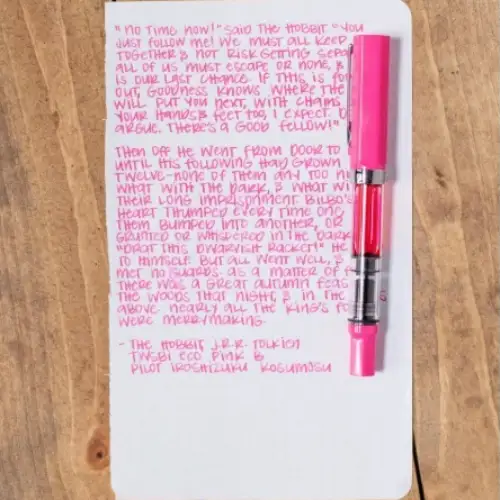 "NO TIME NOW!" SAID THE HOBBIT "YOU
JUST FOLLOW ME! WE MUST ALL KEEP
TOGETHER & NOT RISK GETTING SEPA
ALL OF US MUST ESCAPE OR NONE, &
IS OUR LAST CHANCE. IF THIS IS FO
OUT, GOODNESS KNOWS WHERE THE
WILL PUT YOU NEXT, WITH CHAINS
YOUR HANDS & FEET TOO, I EXPECT. D
ARGUE. THERE'S A GOOD FELLOW!"
THEN OFF HE WENT FROM DOOR TO
UNTIL HIS FOLLOWING HAD GROWN
TWELVE-NONE OF THEM ANY TOO NI
WHAT WITH THE DARK, & WHAT WI
THEIR LONG IMPRISONMENT. BILBO'S
HEART THUMPED EVERY TIME ONE
THEM BUMPED INTO ANOTHER, OR
GRUNTED OR WHISPERED IN THE DARK
"DRAT THIS DWARVISH RACKET!" HE
TO HIMSELF. BUT ALL WENT WELL, &
MET NO GUARDS. AS A MATTER OF F
THERE WAS A GREAT AUTUMN FEAS
THE WOODS THAT NIGHT, & IN THE
ABOVE. NEARLY ALL THE KING'S FO
WERE MERRYMAKING.
- THE HOBBIT J.R.R. TOLKIEN
TWSBI ECO PINK B
PILOT IROSHIZUKU KOSUMOSU